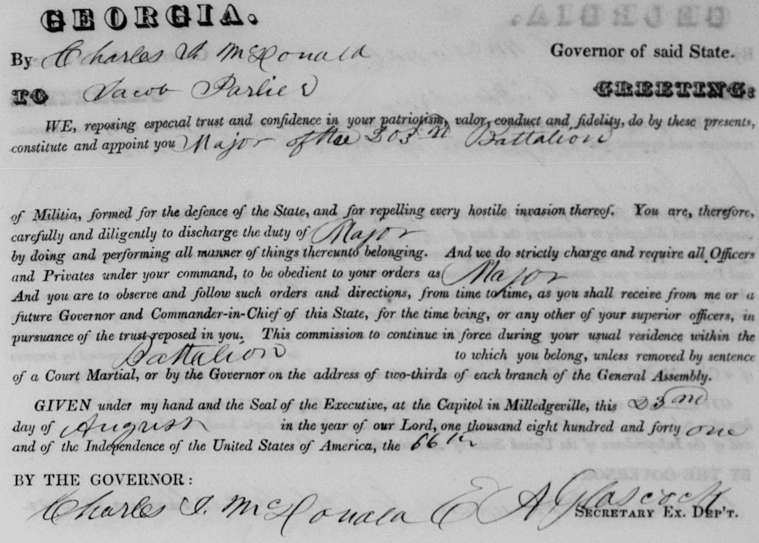 GEORGIA.
By Charles J. McDonald Governor of said State.
TO Jacob Parlier GREETING:
WE, reposing especial trust and confidence in your patriotism, valor, conduct and fidelity, do by these presents,
constitute and appoint you Major of the 203rd Battalion
of Militia, formed for the defence of the State, and for repelling every hostile invasion thereof. You are, therefore,
carefully and diligently to discharge the duty of Major
by doing and performing all manner of things thereunto belonging. And we do strictly charge and require all Officers
and Privates under your command, to be obedient to your orders as Major
And you are to observe and follow such orders and directions, from time to time, as you shall receive from me or a
future Governor and Commander-in-Chief of this State, for the time being, or any other of your superior officers, in
pursuance of the trust reposed in you. This commission to continue in force during your usual residence within the
Battalion to which you belong, unless removed by sentence
of a Court Martial, or by the Governor on the address of two-thirds of each branch of the General Assembly.
GIVEN under my hand and the Seal of the Executive, at the Capitol in Milledgeville, this
day of August in the year of our Lord, one thousand eight hundred and forty one
and of the Independence of the United States of America, the 66th
BY THE GOVERNOR:
Charles J. McDonald E A Glascock
SECRETARY EX. DEP'T.